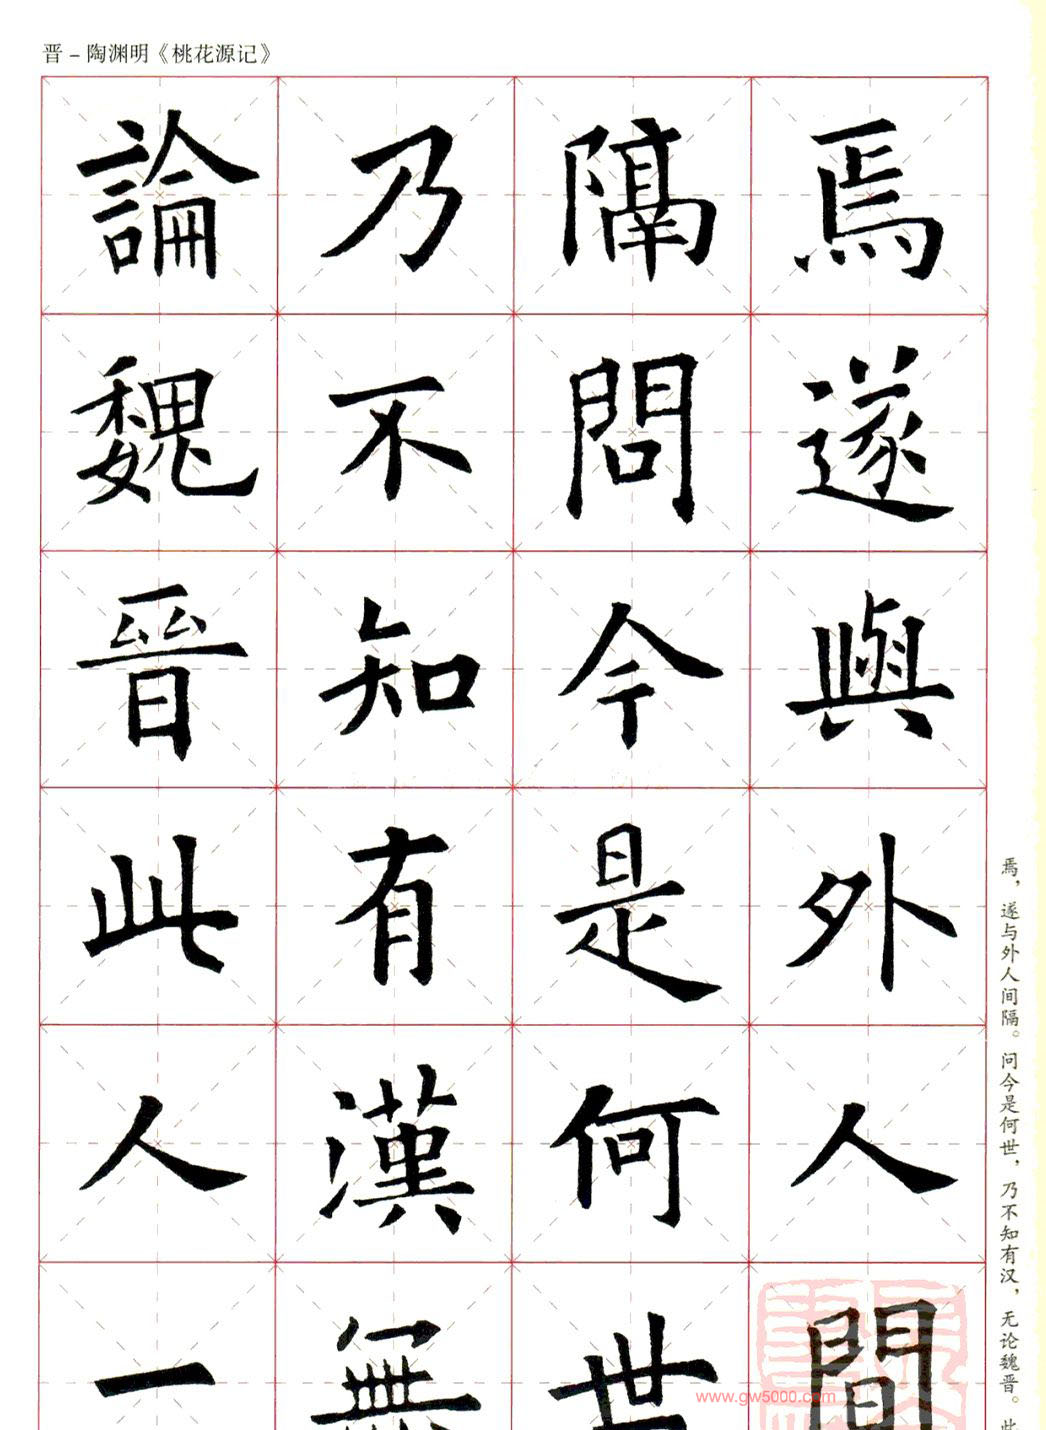 晋－陶渊明《桃花源记》
焉遂與外人間
隔問今是何世
乃不知有漢無
論魏晉此人一
焉，遂与外人间隔。问今是何世，乃不知有汉，无论魏晋。此
www.gw5000.com